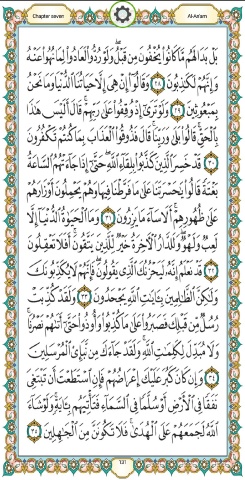 Chapter seven
Al-An'am
بَلْ بَدَا لَهُم مَّا كَانُوا۟ يُخْفُونَ مِن قَبْلُ ۖ وَلَوْ رُدُّوا۟ لَعَادُوا۟ لِمَا نُهُوا۟ عَنْهُ
وَإِنَّهُمْ لَكَـٰذِبُونَ ٢٨ وَقَالُوٓا۟ إِنْ هِىَ إِلَّا حَيَاتُنَا ٱلدُّنْيَا وَمَا نَحْنُ
بِمَبْعُوثِينَ ٢٩ وَلَوْ تَرَىٰٓ إِذْ وُقِفُوا۟ عَلَىٰ رَبِّهِمْ ۚ قَالَ أَلَيْسَ هَـٰذَا
بِٱلْحَقِّ ۚ قَالُوا۟ بَلَىٰ وَرَبِّنَا ۚ قَالَ فَذُوقُوا۟ ٱلْعَذَابَ بِمَا كُنتُمْ تَكْفُرُونَ
٣٠ قَدْ خَسِرَ ٱلَّذِينَ كَذَّبُوا۟ بِلِقَآءِ ٱللَّهِ ۖ حَتَّىٰٓ إِذَا جَآءَتْهُمُ ٱلسَّاعَةُ
بَغْتَةً قَالُوا۟ يَـٰحَسْرَتَنَا عَلَىٰ مَا فَرَّطْنَا فِيهَا وَهُمْ يَحْمِلُونَ أَوْزَارَهُمْ
عَلَىٰ ظُهُورِهِمْ ۚ أَلَا سَآءَ مَا يَزِرُونَ ٣١ وَمَا ٱلْحَيَوٰةُ ٱلدُّنْيَآ إِلَّا
لَعِبٌ وَلَهْوٌ ۖ وَلَلدَّارُ ٱلْـَٔاخِرَةُ خَيْرٌ لِّلَّذِينَ يَتَّقُونَ ۗ أَفَلَا تَعْقِلُونَ
٣٢ قَدْ نَعْلَمُ إِنَّهُۥ لَيَحْزُنُكَ ٱلَّذِى يَقُولُونَ ۖ فَإِنَّهُمْ لَا يُكَذِّبُونَكَ
وَلَـٰكِنَّ ٱلظَّـٰلِمِينَ بِـَٔايَـٰتِ ٱللَّهِ يَجْحَدُونَ ٣٣ وَلَقَدْ كُذِّبَتْ
رُسُلٌ مِّن قَبْلِكَ فَصَبَرُوا۟ عَلَىٰ مَا كُذِّبُوا۟ وَأُوذُوا۟ حَتَّىٰٓ أَتَىٰهُمْ نَصْرُنَا ۚ
وَلَا مُبَدِّلَ لِكَلِمَـٰتِ ٱللَّهِ ۚ وَلَقَدْ جَآءَكَ مِن نَّبَإِى۟ ٱلْمُرْسَلِينَ
٣٤ وَإِن كَانَ كَبُرَ عَلَيْكَ إِعْرَاضُهُمْ فَإِنِ ٱسْتَطَعْتَ أَن تَبْتَغِىَ
نَفَقًا فِى ٱلْأَرْضِ أَوْ سُلَّمًا فِى ٱلسَّمَآءِ فَتَأْتِيَهُم بِـَٔايَةٍ ۚ وَلَوْ شَآءَ
ٱللَّهُ لَجَمَعَهُمْ عَلَى ٱلْهُدَىٰ ۚ فَلَا تَكُونَنَّ مِنَ ٱلْجَـٰهِلِينَ ٣٥
131